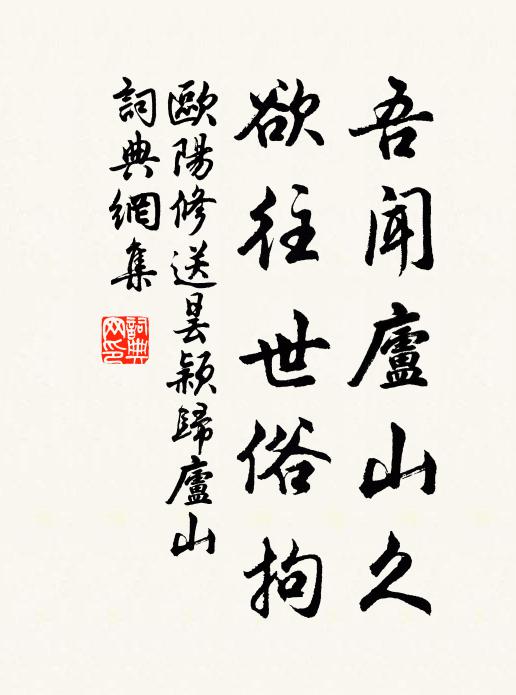 吾聞廬山久
欲往世俗拘
歐陽修送曇穎歸廬山
詞典網集
詞典
网印